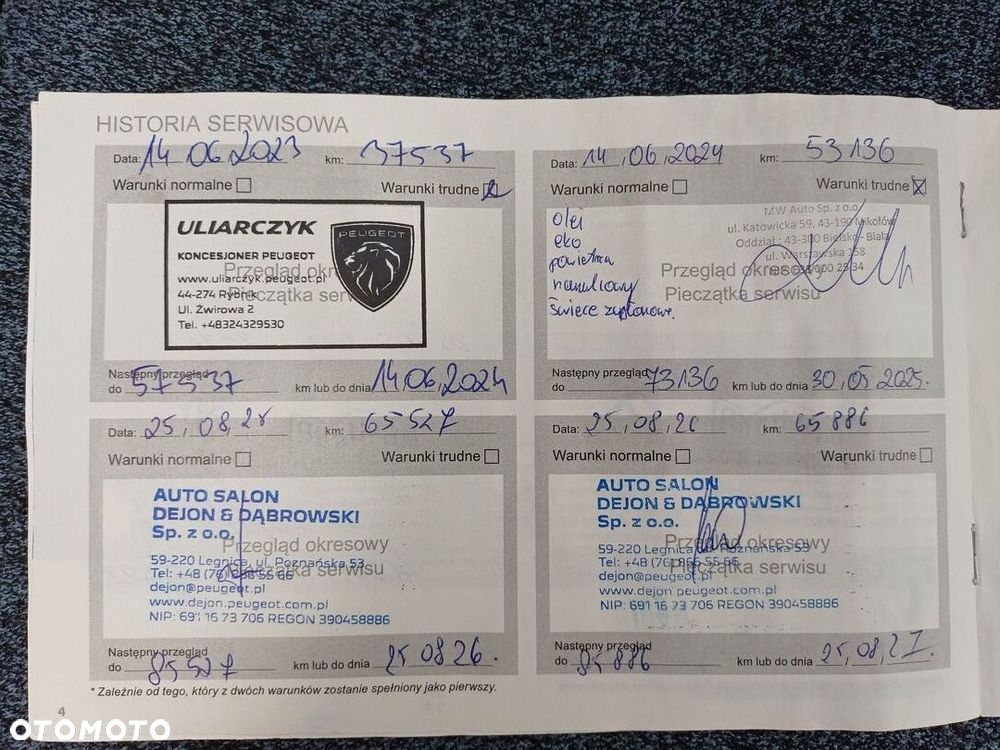 HISTORIA SERWISOWA
Data: 14 06 2023 km: 37537
Warunki normalne Warunki trudne
ULIARCZYK
PEUGEOT
KONCESJONER PEUGEOT
www.uliarczyk.peugeot.pl
Przegląd okresowy
44-274 Rybnik
Pieczątka serwisu
Ul. Żwirowa 2
Tel. +48324329530
Następny przegląd
do 57537 km lub do dnia 14.06.2024
Data: 14.06.2024 km: 53136
Warunki normalne Warunki trudne
MW Auto Sp. z o.o.
ul. Katowicka 59, 43-190 Mikołów
Oddział: 43-300 Bielsko-Biała
ul. Warszawska 158
olej
eko
powietrza
kabinowy
świece zapłonowe.
Przegląd okresowy
Pieczątka serwisu
Następny przegląd
do 73136 km lub do dnia 30.05.2025.
Data: 25.08.25 km: 65527
Warunki normalne Warunki trudne
AUTO SALON
DEJON & DĄBROWSKI
Sp. z o.o.
Przegląd okresowy
59-220 Legnica, ul. Poznańska 53
Tel: +48 (76) 856 55 66
Pieczątka serwisu
dejon@peugeot.pl
www.dejon.peugeot.com.pl
NIP: 691 16 73 706 REGON 390458886
Następny przegląd
do 85527 km lub do dnia 25 08 26.
Data: 25.08.26 km: 65886
Warunki normalne Warunki trudne
AUTO SALON
DEJON & DĄBROWSKI
Sp. z o.o.
Przegląd okresowy
59-220 Legnica, ul. Poznańska 53
Tel: +48 (76) 856 55 66
Pieczątka serwisu
dejon@peugeot.pl
www.dejon.peugeot.com.pl
NIP: 691 16 73 706 REGON 390458886
Następny przegląd
do 85886 km lub do dnia 25.08.27.
* Zależnie od tego, który z dwóch warunków zostanie spełniony jako pierwszy.
4
OTOMOTO